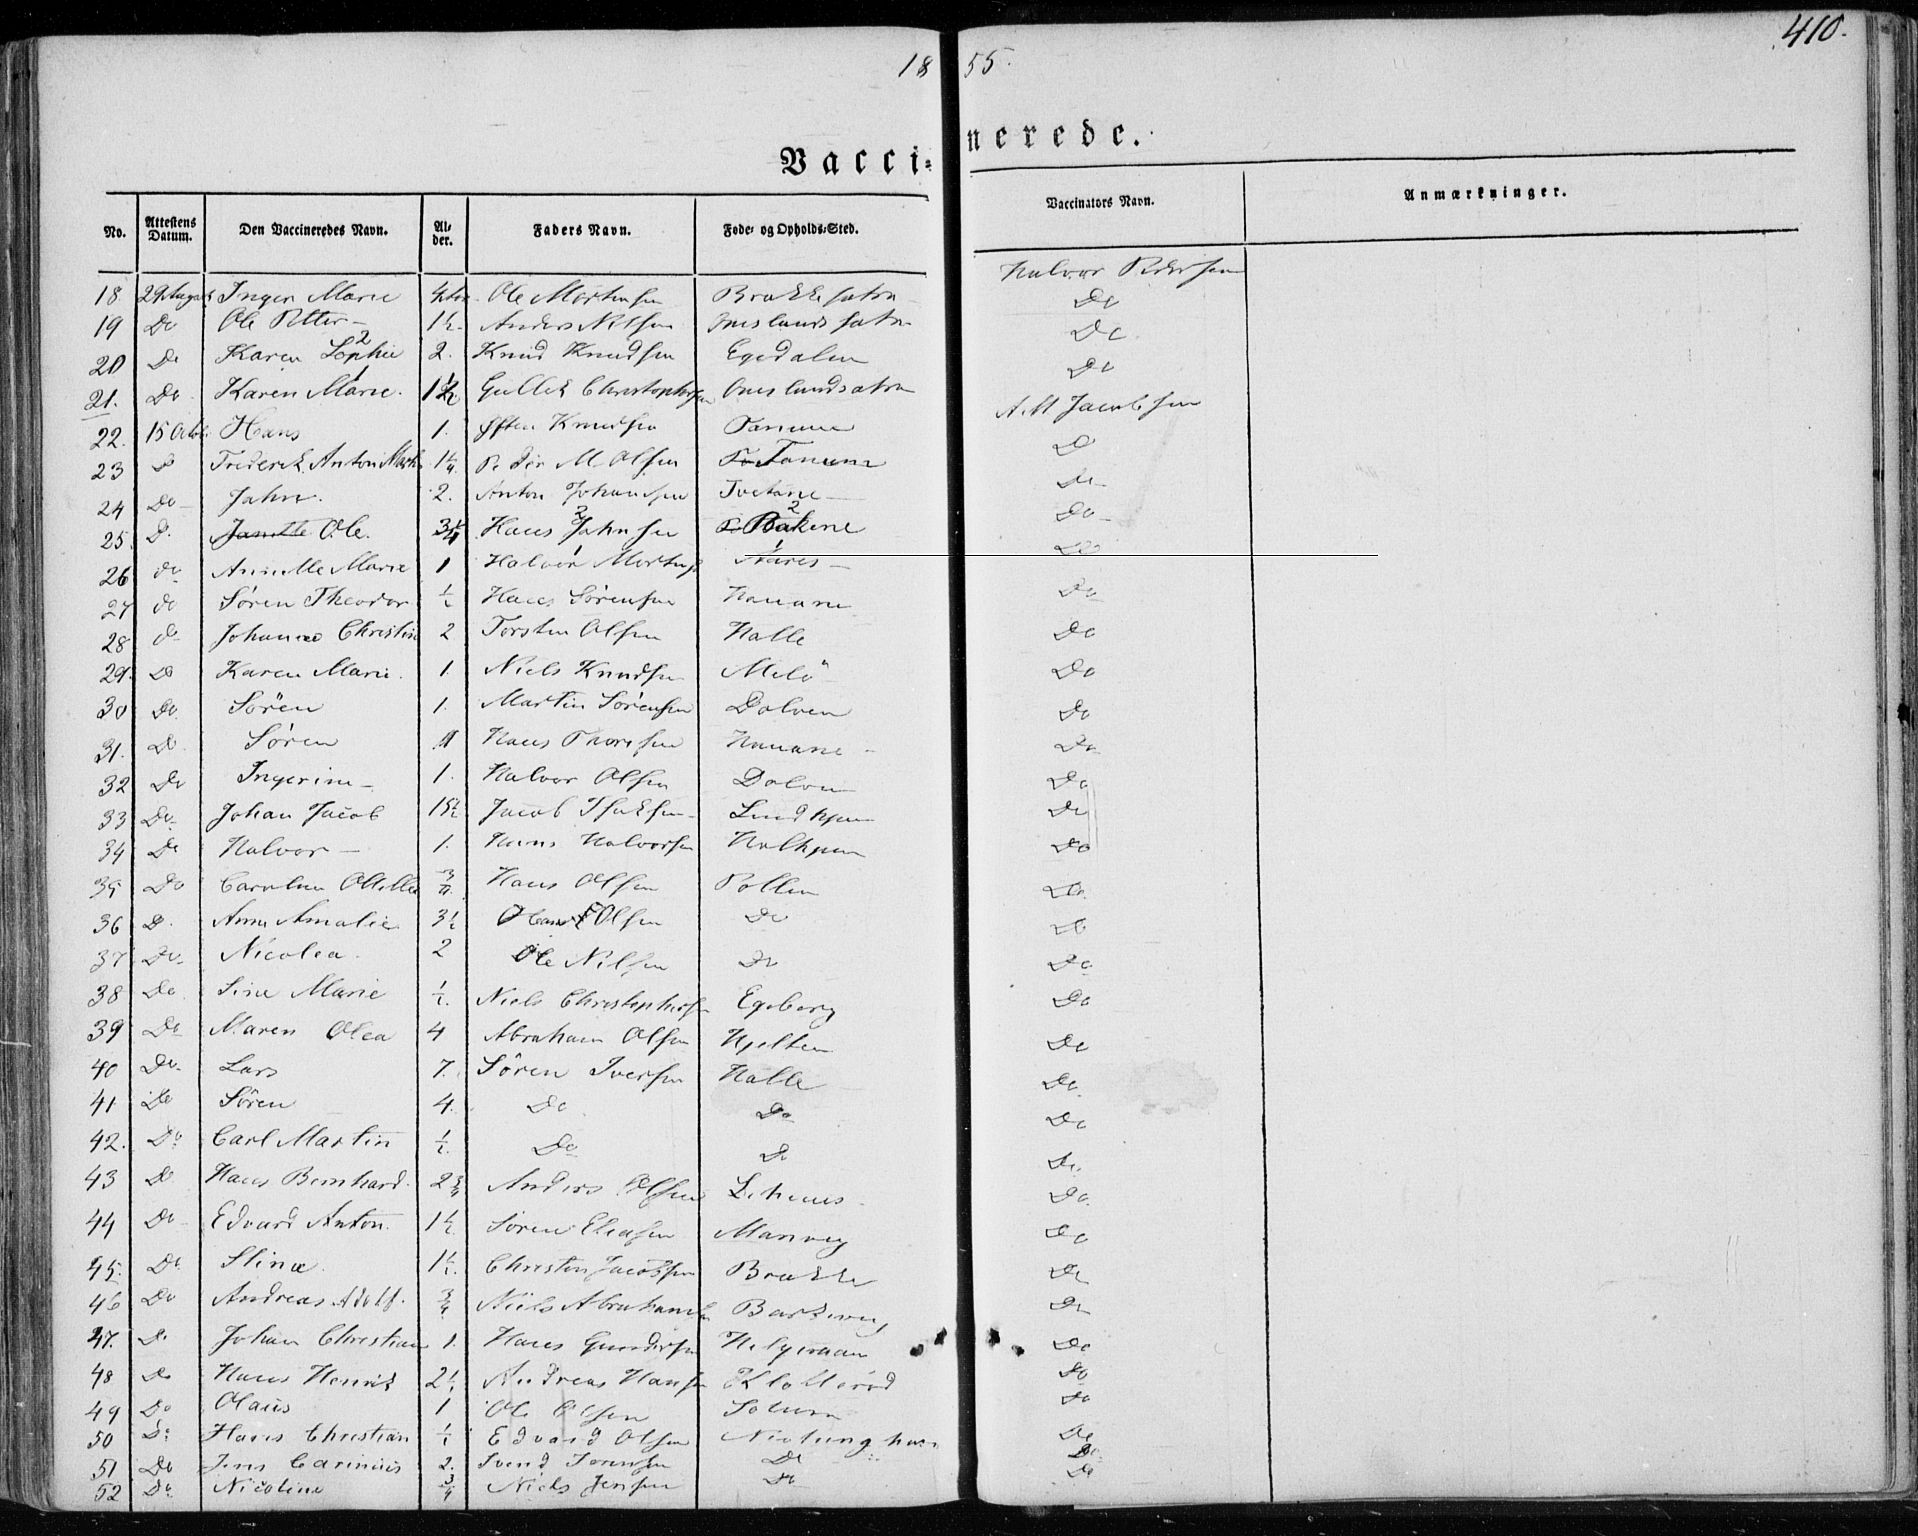 410.
18 55.
Vacci- nerede.
No. Attestens Datum. Den Vaccineredes Navn. Al- der. Faders Navn. Føde- og Opholds-Sted. Vaccinators Navn. Anmærkninger.
18 29 August Inger Marie Ole Mortensen Brækkesætra Halvor Pedersen
19 Do Ole Petter 1½. Anders Nilsen Do
20 Do Karen Sophie 2. Knud Knudsen Egedalen Do
21. Do Karen Marie. 1½ Gullik Christophersen Do
22. 15 Octob. Hans 1. Øften Knudsen Fanum A. M Jacobsen
23 Do Frederik Anton Mart. 1¼ Peder M. Olsen Do Tanum Do
24 Do Jahn. 2. Anton Johansen Tvetene Do
25. D. Janette Ole. 3¼ Hans Jahnsen Bakene Do
26 do Annette Marie 1 Halvor Mortens Nares Do
27 do Søren Theodor ½ Hans Sørensen Hauane Do
28 do Johanne Christin 2 Torsten Olsen Halle Do
29. Do Karen Marie. 1. Niels Knudsen Melö Do
30 Do. Søren 1. Martin Sørensen Dolven Do
31. Do Søren 1 Hans Thoresen Hauane Do
32 Do Ingerine 1. Halvor Olsen Dolven Do
33 Do Johan Jacob 1½ Jacob Isaksen Lindhjem Do
34 Do Halvor 1. Hans Halvorsen Holhjem Do
35 Do Caroline Ottillia ¾ Hans Olsen Pollen Do
36 D. Anne Amalie 3½ Olsen Do Do
37 Do Nicolea. 2 Ole Nilsen Do Do
38 Do Sine Marie ½. Niels Christophersen Egeberg Do
39 Do Maren Olea 4 Abraham Olsen Hjelten Do
40 Do Lars 7. Søren Iversen Halle Do
41 Do Søren 4. Do Do Do
42. Do Carl Martin ½. Do Do Do
43 Do Hans Bernhard. 2¾ Anders Olsen Do
44 Do Edvard Anton. 1½ Søren Eliasen Manvig Do
45. Do Stina. 1½. Christen Jacobsen Brække Do
46 Do Andreas Adolf. ¾ Niels Abrahamsen Barkevig Do
47. Do Johan Christian 1. Hans Gundersen Helgeroaen Do
48 Do Hans Henrik 2½ Andreas Hansen Klotterød Do
49 Do Olaus 1 Ole Olsen Solum Do
50 Do Hans Christian ½ Edvard Olsen Nevlunghavn Do
51 Do Jens Carinius 2. Svend Sørensen Do Do
52 Do Nicoline ¾ Niels Jensen Do Do